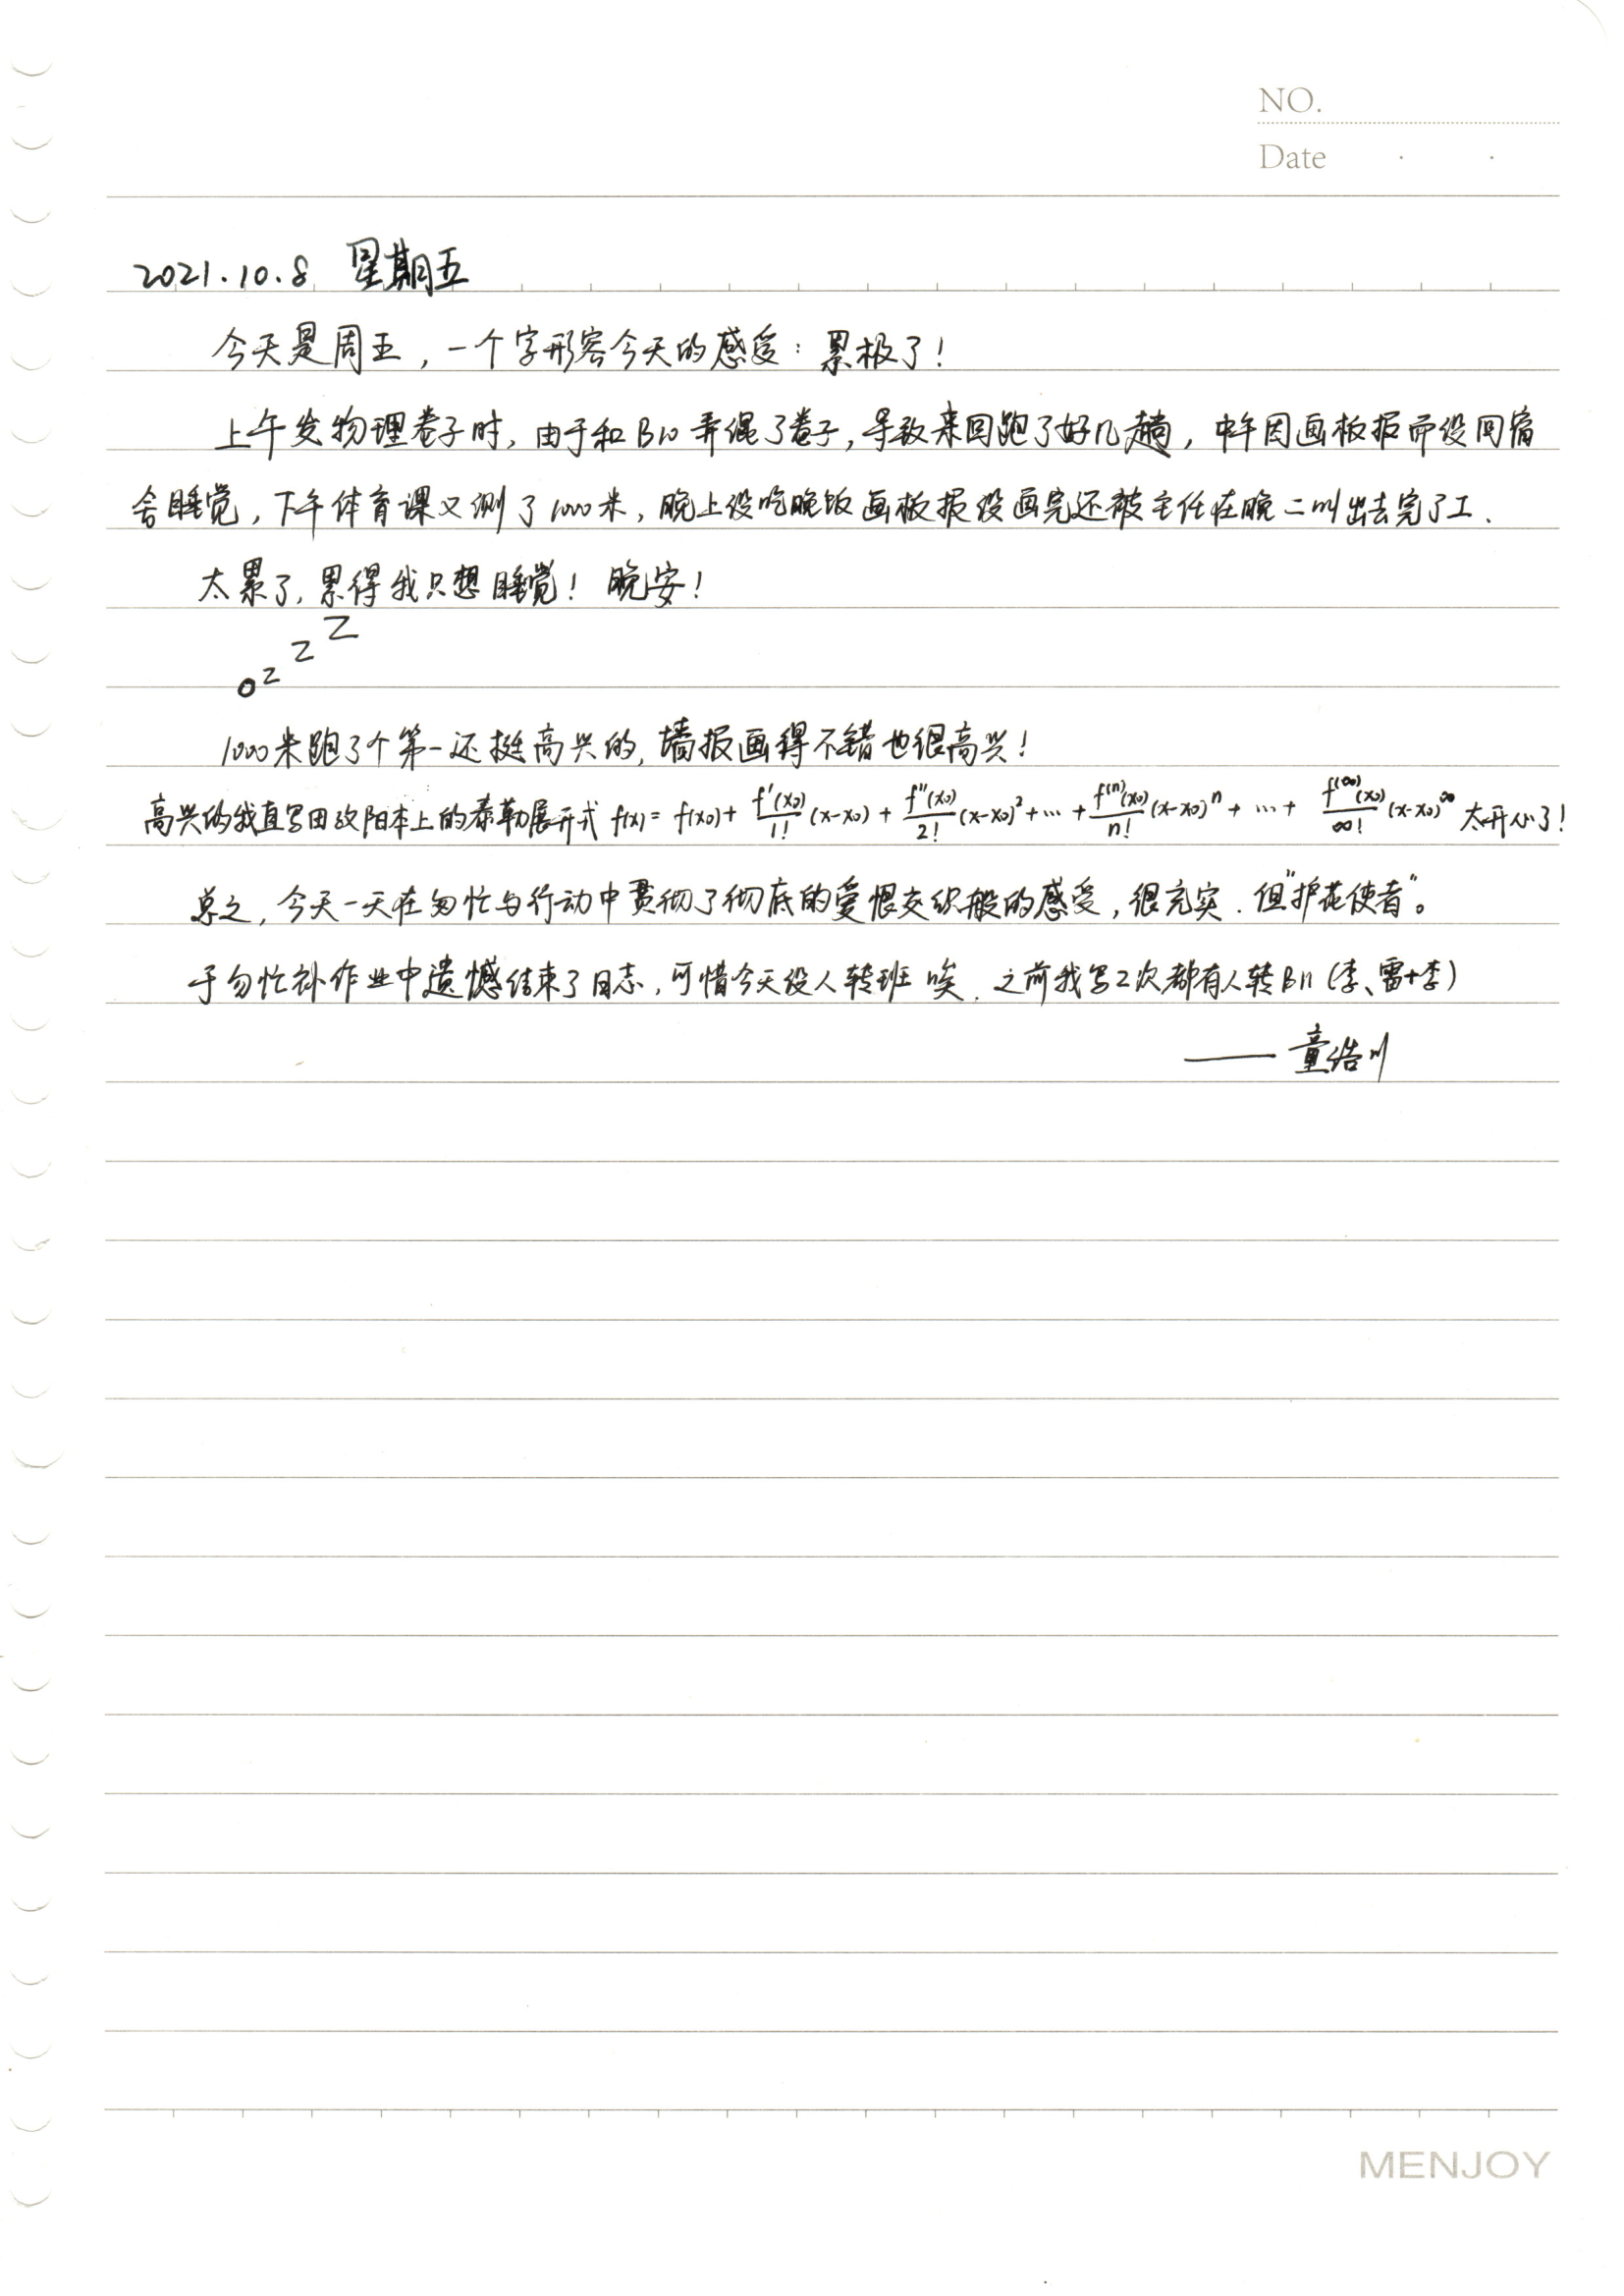 NO.
Date · ·
2021.10.8 星期五
今天是周五，一个字形容今天的感受：累极了！
上午发物理卷子时，由于和B10弄混了卷子，导致来回跑了好几趟，中午因画板报而没回宿
舍睡觉，下午体育课又测了1000米，晚上没吃晚饭画板报没画完还被主任在晚二叫出去完了工.
太累了，累得我只想睡觉！晚安！
o z z Z
1000米跑了个第一还挺高兴的，墙报画得不错也很高兴！
高兴的我直写田改阳本上的泰勒展开式 f(x) = f(x₀) + f'(x₀)/1! (x-x₀) + f''(x₀)/2! (x-x₀)² + … + f⁽ⁿ⁾(x₀)/n! (x-x₀)ⁿ + … + f^(∞)(x₀)/∞! (x-x₀)^∞ 太开心了！
总之，今天一天在匆忙与行动中贯彻了彻底的爱恨交织般的感受，很充实．但“护花使者”。
于匆忙补作业中遗憾结束了日志，可惜今天没人转班 唉．之前我写2次都有人转B11（李、雷+李）
——童浩川
MENJOY